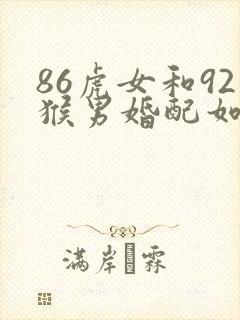 86虎女和92
猴男婚配如
满岸霖